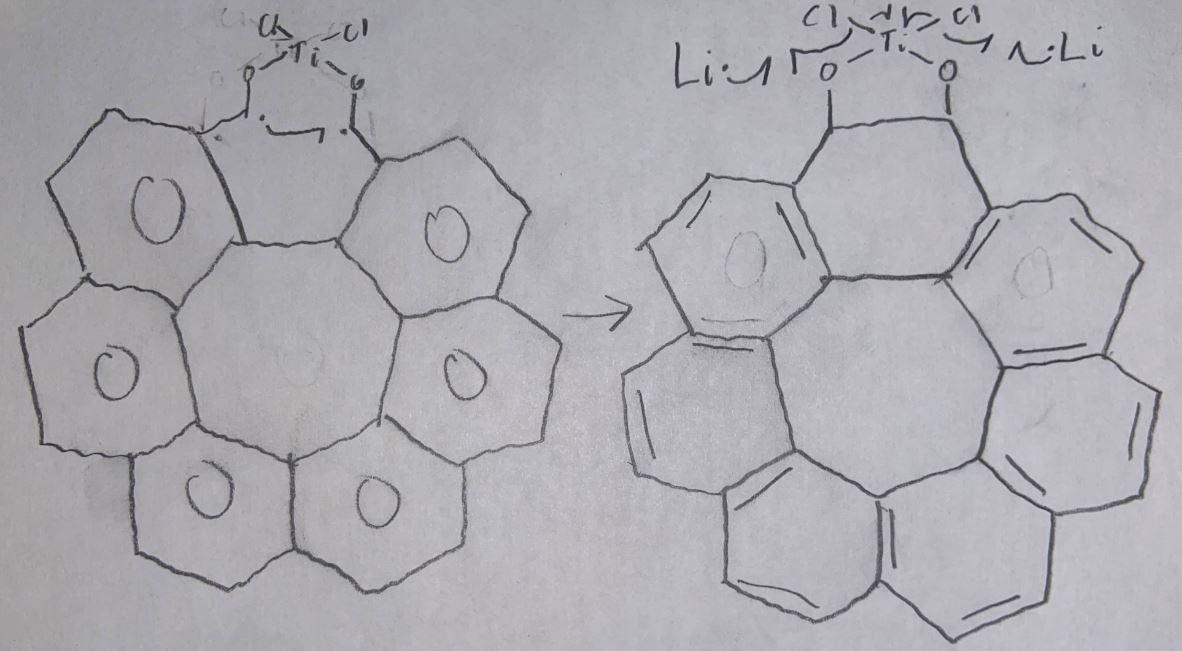 Cl Cl
Ti
O O
Cl Cl
Ti
Li Li
O O